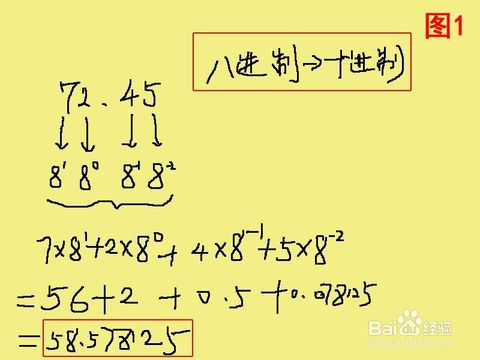 图1
八进制→十进制
72.45
↓ ↓ ↓ ↓
8¹ 8⁰ 8⁻¹ 8⁻²
7×8¹+2×8⁰+4×8⁻¹+5×8⁻²
=56+2+0.5+0.078125
=58.578125
Baidu经验
jingyan.baidu.com